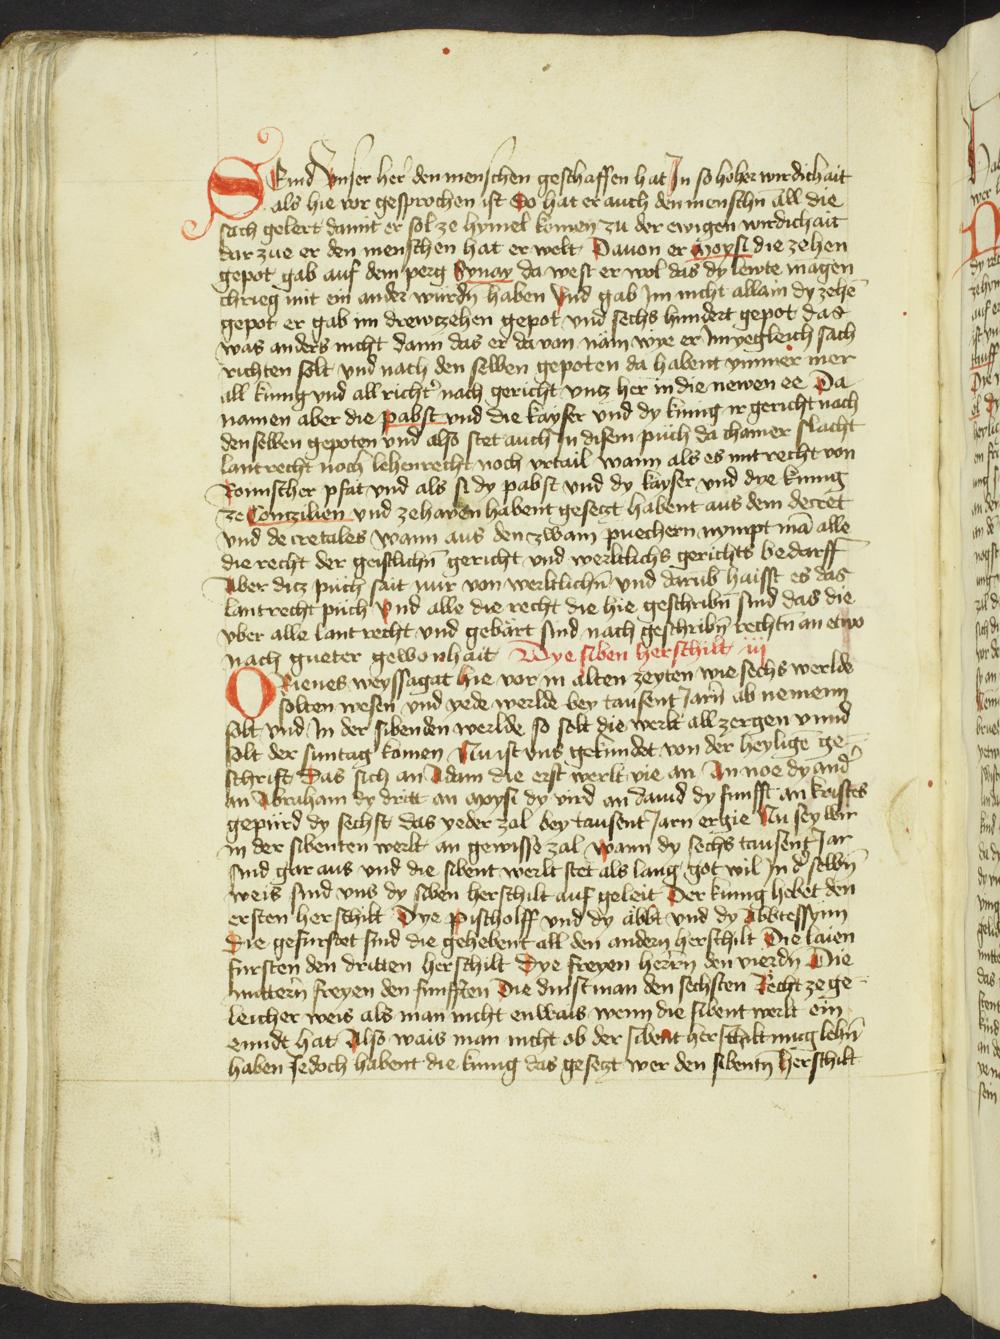 SEind vnser her den menschen geschaffen hat Jn so hoher wirdichait
als hie vor gesprochen ist So hat er auch den menschn̄ all die
sach gelert damit er sol ze hymel komen zu der ewigen wirdichait
dar zue er den menschen hat er welt Dauon er moysi die zehen
gepot gab auf dem perg Synay da west er wol das dy lewte magen
chrieg mit ein ander würdn̄ haben Vnd gab Jm nicht allain dy zehē
gepot er gab im drewczehen gepot vnd sechs hundert gepot das
was anders nicht dann das er da von näm wye er Jm yegleich sach
richten solt vnd nach den selben gepoten da habent ymmer mer
all kunig vnd all richt̉ nach gericht vncz her in die newen ee Da
namen aber die pabst vnd die kayser vnd dy kunig ir gericht nach
den selben gepoten vnd also stet auch in disem püch da chainer slacht
lantrecht noch lehenrecht noch vrtail wann als es mit recht von
Romischer pfat vnd als si dy pabst vnd dy kayser vnd dye kunig
ze Conczilien vnd ze haven habent gesetzt habent aus dem decret
vnd decretales wann aus den zwain puechern nympt mā alle
die recht der geistlichn̄ gericht vnd werltlichs gerichts bedarff
Aber ditz püch sait nur von werltlichn̄ vnd darūb haisst es das
lantrecht püch Vnd alle die recht die hie geschribn̄ sind das die
vber alle lant recht vnd gebärt sind nach geschribn̄ rechtn̄ an etwo
nach gueter gewonhait Dye siben herschilt iij
ORienes weyssagat hie vor in alten zeyten wie sechs werlde
solten wesen vnd yede werlde bey tausent Jarn̄ ab nemenn
solt vnd Jn der sibenden werlde so solt die werlt all zergen vnnd
solt der suntag komen Nu ist vns gekündet von der heyligē ge-
schrift Das sich an Adam die erst werlt vie an An noe dy and̉
an Abraham dy dritt an moysi dy vird an dauid dy funfft an kristes
gepurd dy sechst das yeder zal bey tausent Jarn ergie Nu sey wir
in der sibenten werlt an gewisse zal Wann dy sechs tausent Jar
sind gar aus vnd die sibent werlt stet als lang got wil Jn d̉ selbn̄
weis sind vns dy siben herschilt auf geleit Der kunig hebet den
ersten herschilt Dye pischolff vnd dy äbbt vnd dy Abbtessynn
Die gefurstet sind die gehebent all den andern herschilt Die laien
fursten den dritten herschilt Dye freyen herrn̄ den vierdn̄ Die
mittern̄ freyen den funfften Die dinstman den sechsten Recht ze ge-
leicher weis als man nicht enwais wenn die sibent werlt ein
enndt hat Also wais man nicht ob der sibent herschilt mug lehn̄
haben Jedoch habent die kunig das gesetzt wer den sibentn̄ herschilt